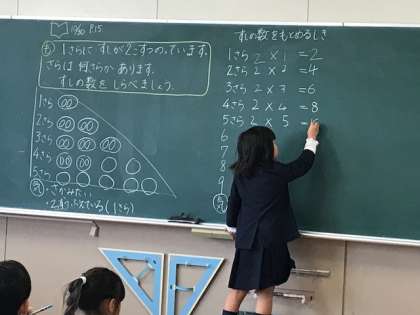 10/30 P.15
も 1さらに すしが2こずつのっています。
さらは 何さらか あります。
すしの数を しらべましょう。
1さら
2さら
3さら
4さら
5さら
・さがみたい
・2つふえている(1さら)
すしの数をもとめるしき
1さら 2 × 1 = 2
2さら 2 × 2 = 4
3さら 2 × 3 = 6
4さら 2 × 4 = 8
5さら 2 × 5 =
6
7
8
9